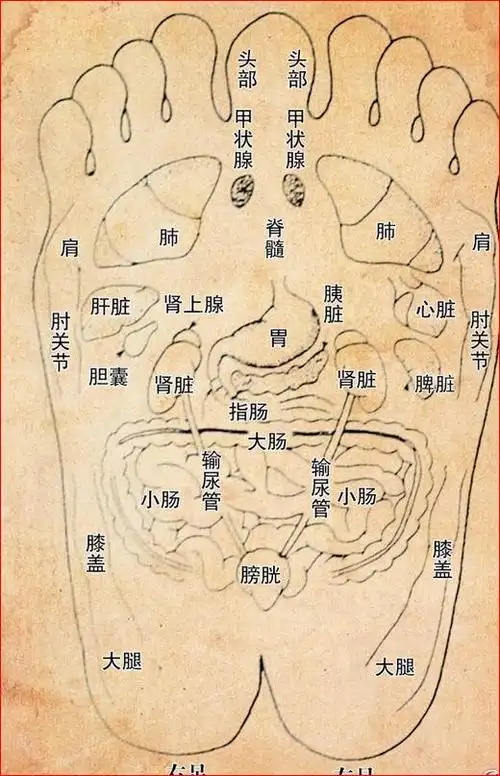 头部
头部
甲状腺
甲状腺
脊髓
肺
肺
肩
肩
肝脏
肾上腺
胰脏
心脏
肘关节
肘关节
胃
胆囊
肾脏
肾脏
脾脏
指肠
大肠
输尿管
输尿管
小肠
小肠
膝盖
膝盖
膀胱
大腿
大腿